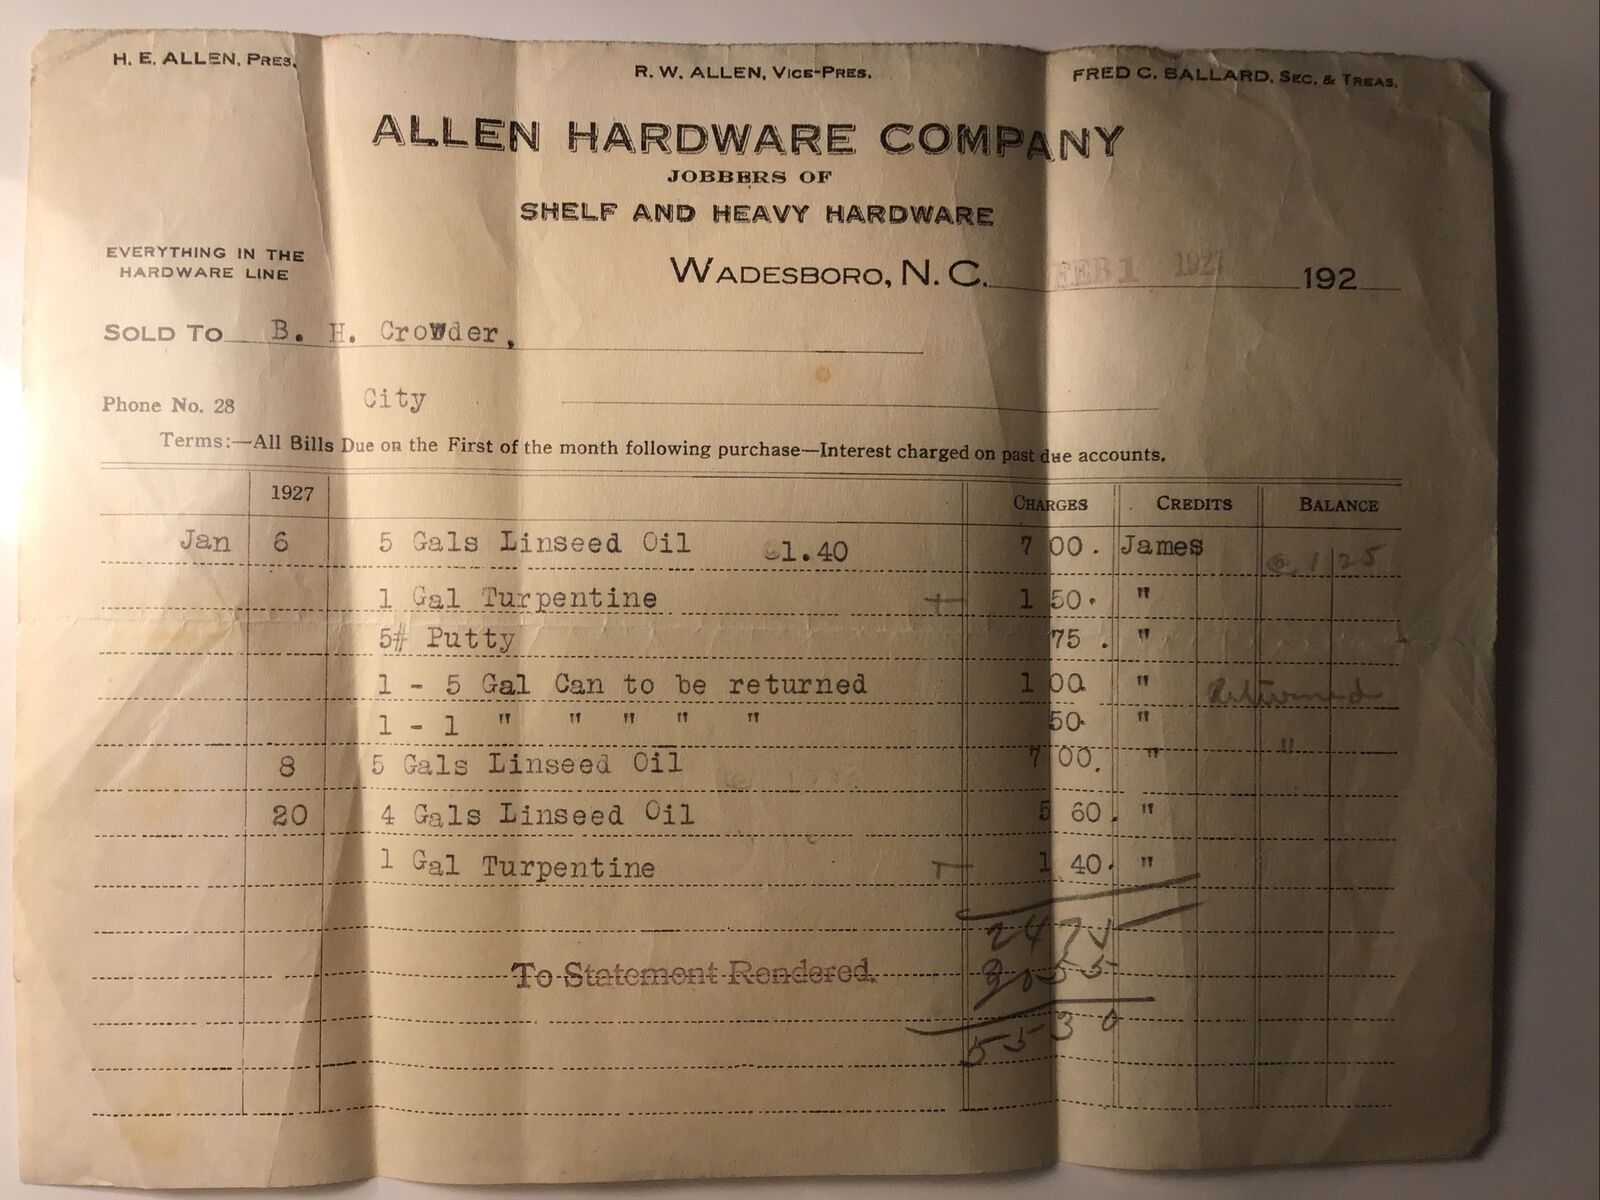 H. E. ALLEN, PRES.
R. W. ALLEN, VICE-PRES.
FRED C. BALLARD, SEC. & TREAS.
ALLEN HARDWARE COMPANY
JOBBERS OF
SHELF AND HEAVY HARDWARE
EVERYTHING IN THE
HARDWARE LINE
WADESBORO, N. C. FEB 1 1927 192
SOLD TO B. H. Crowder,
Phone No. 28 City
Terms:—All Bills Due on the First of the month following purchase—Interest charged on past due accounts.
1927 CHARGES CREDITS BALANCE
Jan 6 5 Gals Linseed Oil @1.40 7 00. James @ 1 25
1 Gal Turpentine + 1 50. "
5# Putty 75 . "
1 - 5 Gal Can to be returned 1 00. " Returned
1 - 1 " " " " " 50. " "
8 5 Gals Linseed Oil 7 00. "
20 4 Gals Linseed Oil 5 60. "
1 Gal Turpentine 1 40. "
24 75
To Statement Rendered. 30 55
55 30